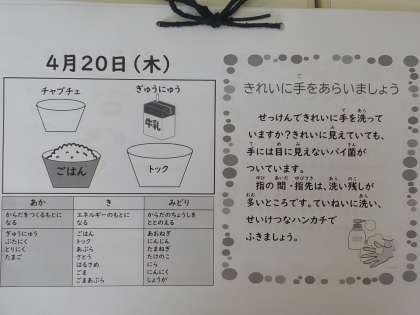 4月20日(木)
チャプチェ
ぎゅうにゅう
牛乳
ごはん
トック
あか
き
みどり
からだをつくるもとに
なる
エネルギーのもとに
なる
からだのちょうしを
ととのえる
ぎゅうにゅう
ぶたにく
とりにく
たまご
ごはん
トック
あぶら
さとう
はるさめ
ごま
ごまあぶら
あおねぎ
にんじん
たまねぎ
たけのこ
にら
にんにく
しょうが
きれいに手をあらいましょう
せっけんできれいに手を洗って
いますか?きれいに見えていても、
手には目に見えないバイ菌が
ついています。
指の間・指先は、洗い残しが
多いところです。ていねいに洗い、
せいけつなハンカチで
ふきましょう。